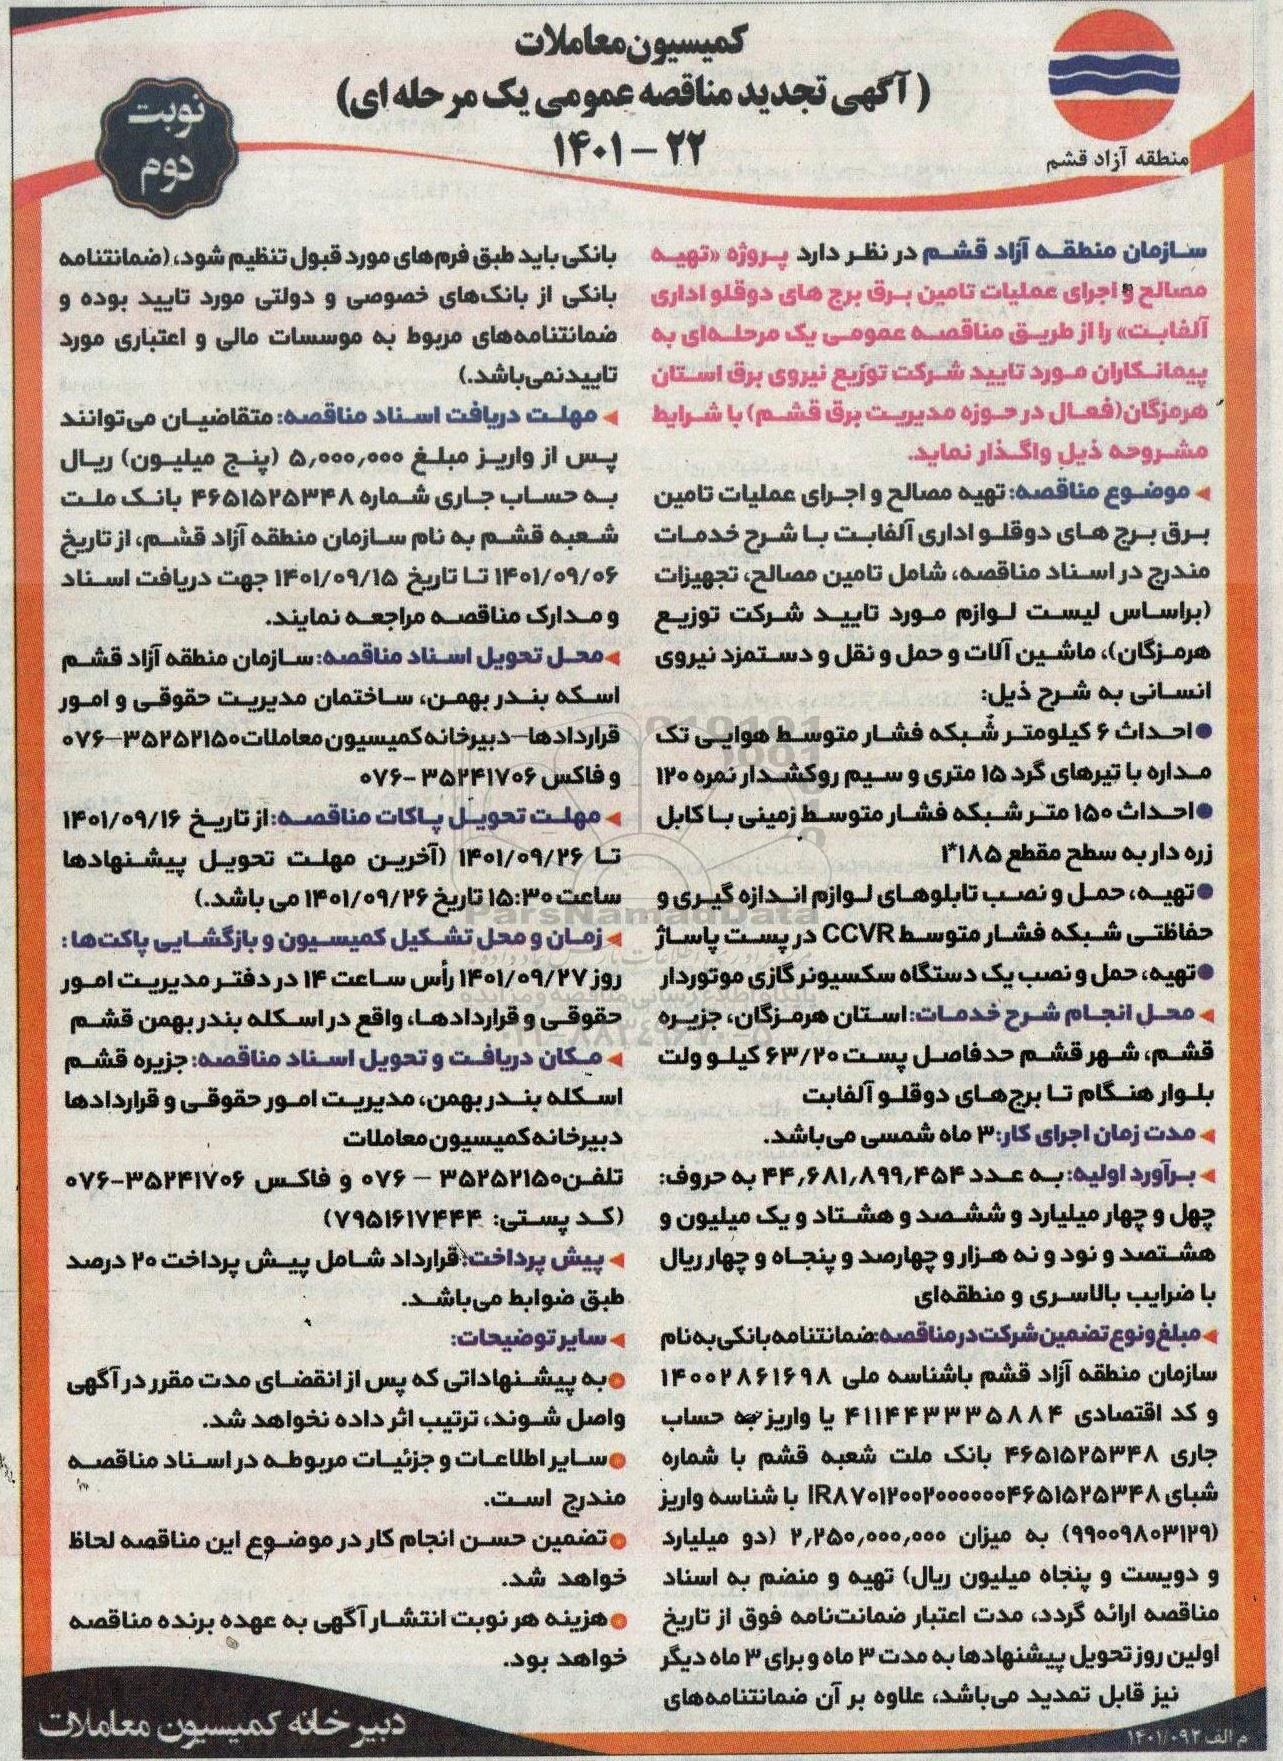 کمیسیون معاملات
(آگهی تجدید مناقصه عمومی یک مرحله ای)
۲۲ - ۱۴۰۱
منطقه آزاد قشم
نوبت
دوم
سازمان منطقه آزاد قشم در نظر دارد پروژه «تهیه
مصالح و اجرای عملیات تامین برق برج های دوقلو اداری
آلفابت» را از طریق مناقصه عمومی یک مرحله‌ای به
پیمانکاران مورد تایید شرکت توزیع نیروی برق استان
هرمزگان(فعال در حوزه مدیریت برق قشم) با شرایط
مشروحه ذیل واگذار نماید.
موضوع مناقصه: تهیه مصالح و اجرای عملیات تامین
برق برج های دوقلو اداری آلفابت با شرح خدمات
مندرج در اسناد مناقصه، شامل تامین مصالح، تجهیزات
(براساس لیست لوازم مورد تایید شرکت توزیع
هرمزگان)، ماشین آلات و حمل و نقل و دستمزد نیروی
انسانی به شرح ذیل:
● احداث ۶ کیلومتر شبکه فشار متوسط هوایی تک
مداره با تیرهای گرد ۱۵ متری و سیم روکشدار نمره ۱۲۰
● احداث ۱۵۰ متر شبکه فشار متوسط زمینی با کابل
زره دار به سطح مقطع ۱۸۵*۱
● تهیه، حمل و نصب تابلوهای لوازم اندازه گیری و
حفاظتی شبکه فشار متوسط CCVR در پست پاساژ
● تهیه، حمل و نصب یک دستگاه سکسیونر گازی موتوردار
محل انجام شرح خدمات: استان هرمزگان، جزیره
قشم، شهر قشم حدفاصل پست ۶۳/۲۰ کیلو ولت
بلوار هنگام تا برج‌های دوقلو آلفابت
مدت زمان اجرای کار: ۳ ماه شمسی می‌باشد.
برآورد اولیه: به عدد ۴۴,۶۸۱,۸۹۹,۴۵۴ به حروف:
چهل و چهار میلیارد و ششصد و هشتاد و یک میلیون و
هشتصد و نود و نه هزار و چهارصد و پنجاه و چهار ریال
با ضرایب بالاسری و منطقه‌ای
مبلغ و نوع تضمین شرکت در مناقصه: ضمانتنامه بانکی به نام
سازمان منطقه آزاد قشم باشناسه ملی ۱۴۰۰۲۸۶۱۶۹۸
و کد اقتصادی ۴۱۱۴۴۳۳۳۵۸۸۴ یا واریز به حساب
جاری ۴۶۵۱۵۲۵۳۴۸ بانک ملت شعبه قشم با شماره
شبای IR۸۷۰۱۲۰۰۲۰۰۰۰۰۰۴۶۵۱۵۲۵۳۴۸ با شناسه واریز
(۹۹۰۰۹۸۰۳۱۲۹) به میزان ۲,۲۵۰,۰۰۰,۰۰۰ (دو میلیارد
و دویست و پنجاه میلیون ریال) تهیه و منضم به اسناد
مناقصه ارائه گردد، مدت اعتبار ضمانت‌نامه فوق از تاریخ
اولین روز تحویل پیشنهادها به مدت ۳ ماه و برای ۳ ماه دیگر
نیز قابل تمدید می‌باشد، علاوه بر آن ضمانتنامه‌های
بانکی باید طبق فرم‌های مورد قبول تنظیم شود، (ضمانتنامه
بانکی از بانک‌های خصوصی و دولتی مورد تایید بوده و
ضمانتنامه‌های مربوط به موسسات مالی و اعتباری مورد
تایید نمی‌باشد.)
مهلت دریافت اسناد مناقصه: متقاضیان می‌توانند
پس از واریز مبلغ ۵,۰۰۰,۰۰۰ (پنج میلیون) ریال
به حساب جاری شماره ۴۶۵۱۵۲۵۳۴۸ بانک ملت
شعبه قشم به نام سازمان منطقه آزاد قشم، از تاریخ
۱۴۰۱/۰۹/۰۶ تا تاریخ ۱۴۰۱/۰۹/۱۵ جهت دریافت اسناد
و مدارک مناقصه مراجعه نمایند.
محل تحویل اسناد مناقصه: سازمان منطقه آزاد قشم
اسکه بندر بهمن، ساختمان مدیریت حقوقی و امور
قراردادها–دبیرخانه کمیسیون معاملات ۳۵۲۵۲۱۵۰–۰۷۶
و فاکس ۳۵۲۴۱۷۰۶ -۰۷۶
مهلت تحویل پاکات مناقصه: از تاریخ ۱۴۰۱/۰۹/۱۶
تا ۱۴۰۱/۰۹/۲۶ (آخرین مهلت تحویل پیشنهادها
ساعت ۱۵:۳۰ تاریخ ۱۴۰۱/۰۹/۲۶ می باشد.)
زمان و محل تشکیل کمیسیون و بازگشایی پاکت‌ها:
روز ۱۴۰۱/۰۹/۲۷ رأس ساعت ۱۴ در دفتر مدیریت امور
حقوقی و قراردادها، واقع در اسکله بندر بهمن قشم
مکان دریافت و تحویل اسناد مناقصه: جزیره قشم
اسکله بندر بهمن، مدیریت امور حقوقی و قراردادها
دبیرخانه کمیسیون معاملات
تلفن ۳۵۲۵۲۱۵۰ – ۰۷۶ و فاکس ۳۵۲۴۱۷۰۶-۰۷۶
(کد پستی: ۷۹۵۱۶۱۷۴۴۴)
پیش پرداخت: قرارداد شامل پیش پرداخت ۲۰ درصد
طبق ضوابط می‌باشد.
سایر توضیحات:
به پیشنهاداتی که پس از انقضای مدت مقرر در آگهی
واصل شوند، ترتیب اثر داده نخواهد شد.
سایر اطلاعات و جزئیات مربوطه در اسناد مناقصه
مندرج است.
تضمین حسن انجام کار در موضوع این مناقصه لحاظ
خواهد شد.
هزینه هر نوبت انتشار آگهی به عهده برنده مناقصه
خواهد بود.
دبیر خانه کمیسیون معاملات
م الف ۱۴۰۱/۰۹۲
ParsNamadData